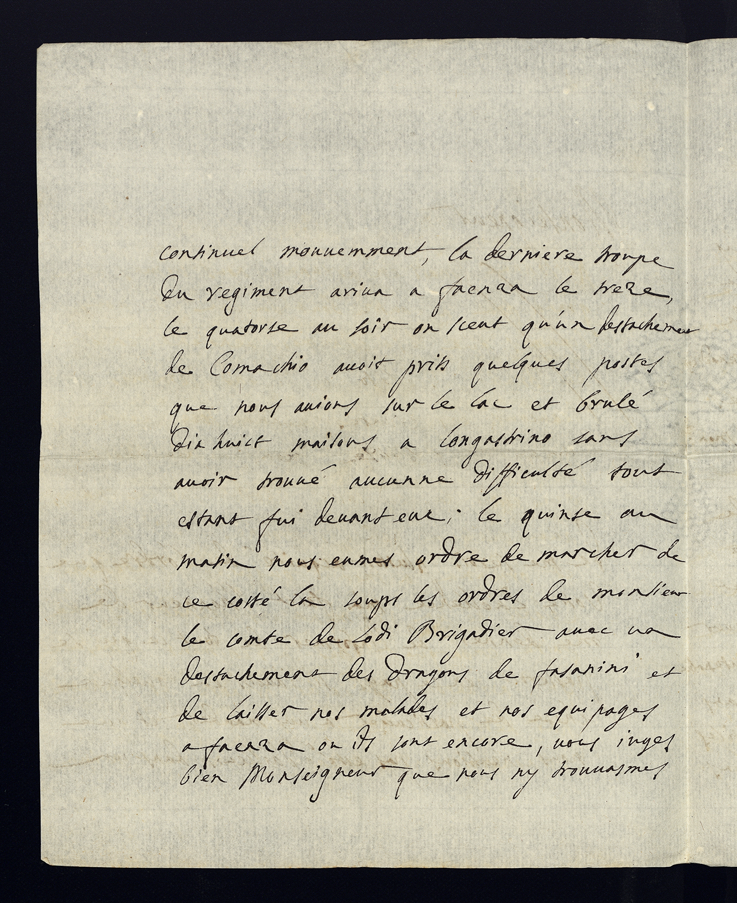 continuel mouuemment, la derniere troupe
du regiment ariua a faenza le treze,
le quatorse au soir on sceut qu'un destachement
de Comachio auoit pris quelques postes
que nous auions sur le lac et brulé
dix huict maisons a longastrino sans
auoir trouué aucunne difficulté tout
estant fui deuant eux; le quinse au
matin nous eumes ordre de marcher de
ce costé la soups les ordres de monsieur
le comte de Lodi Brigadier auec un
destachement des dragons de fasanini et
de laisser nos malades et nos equipages
a faenza ou ils sont encore, uous iuges
bien Monseigneur que nous ny trouuasmes